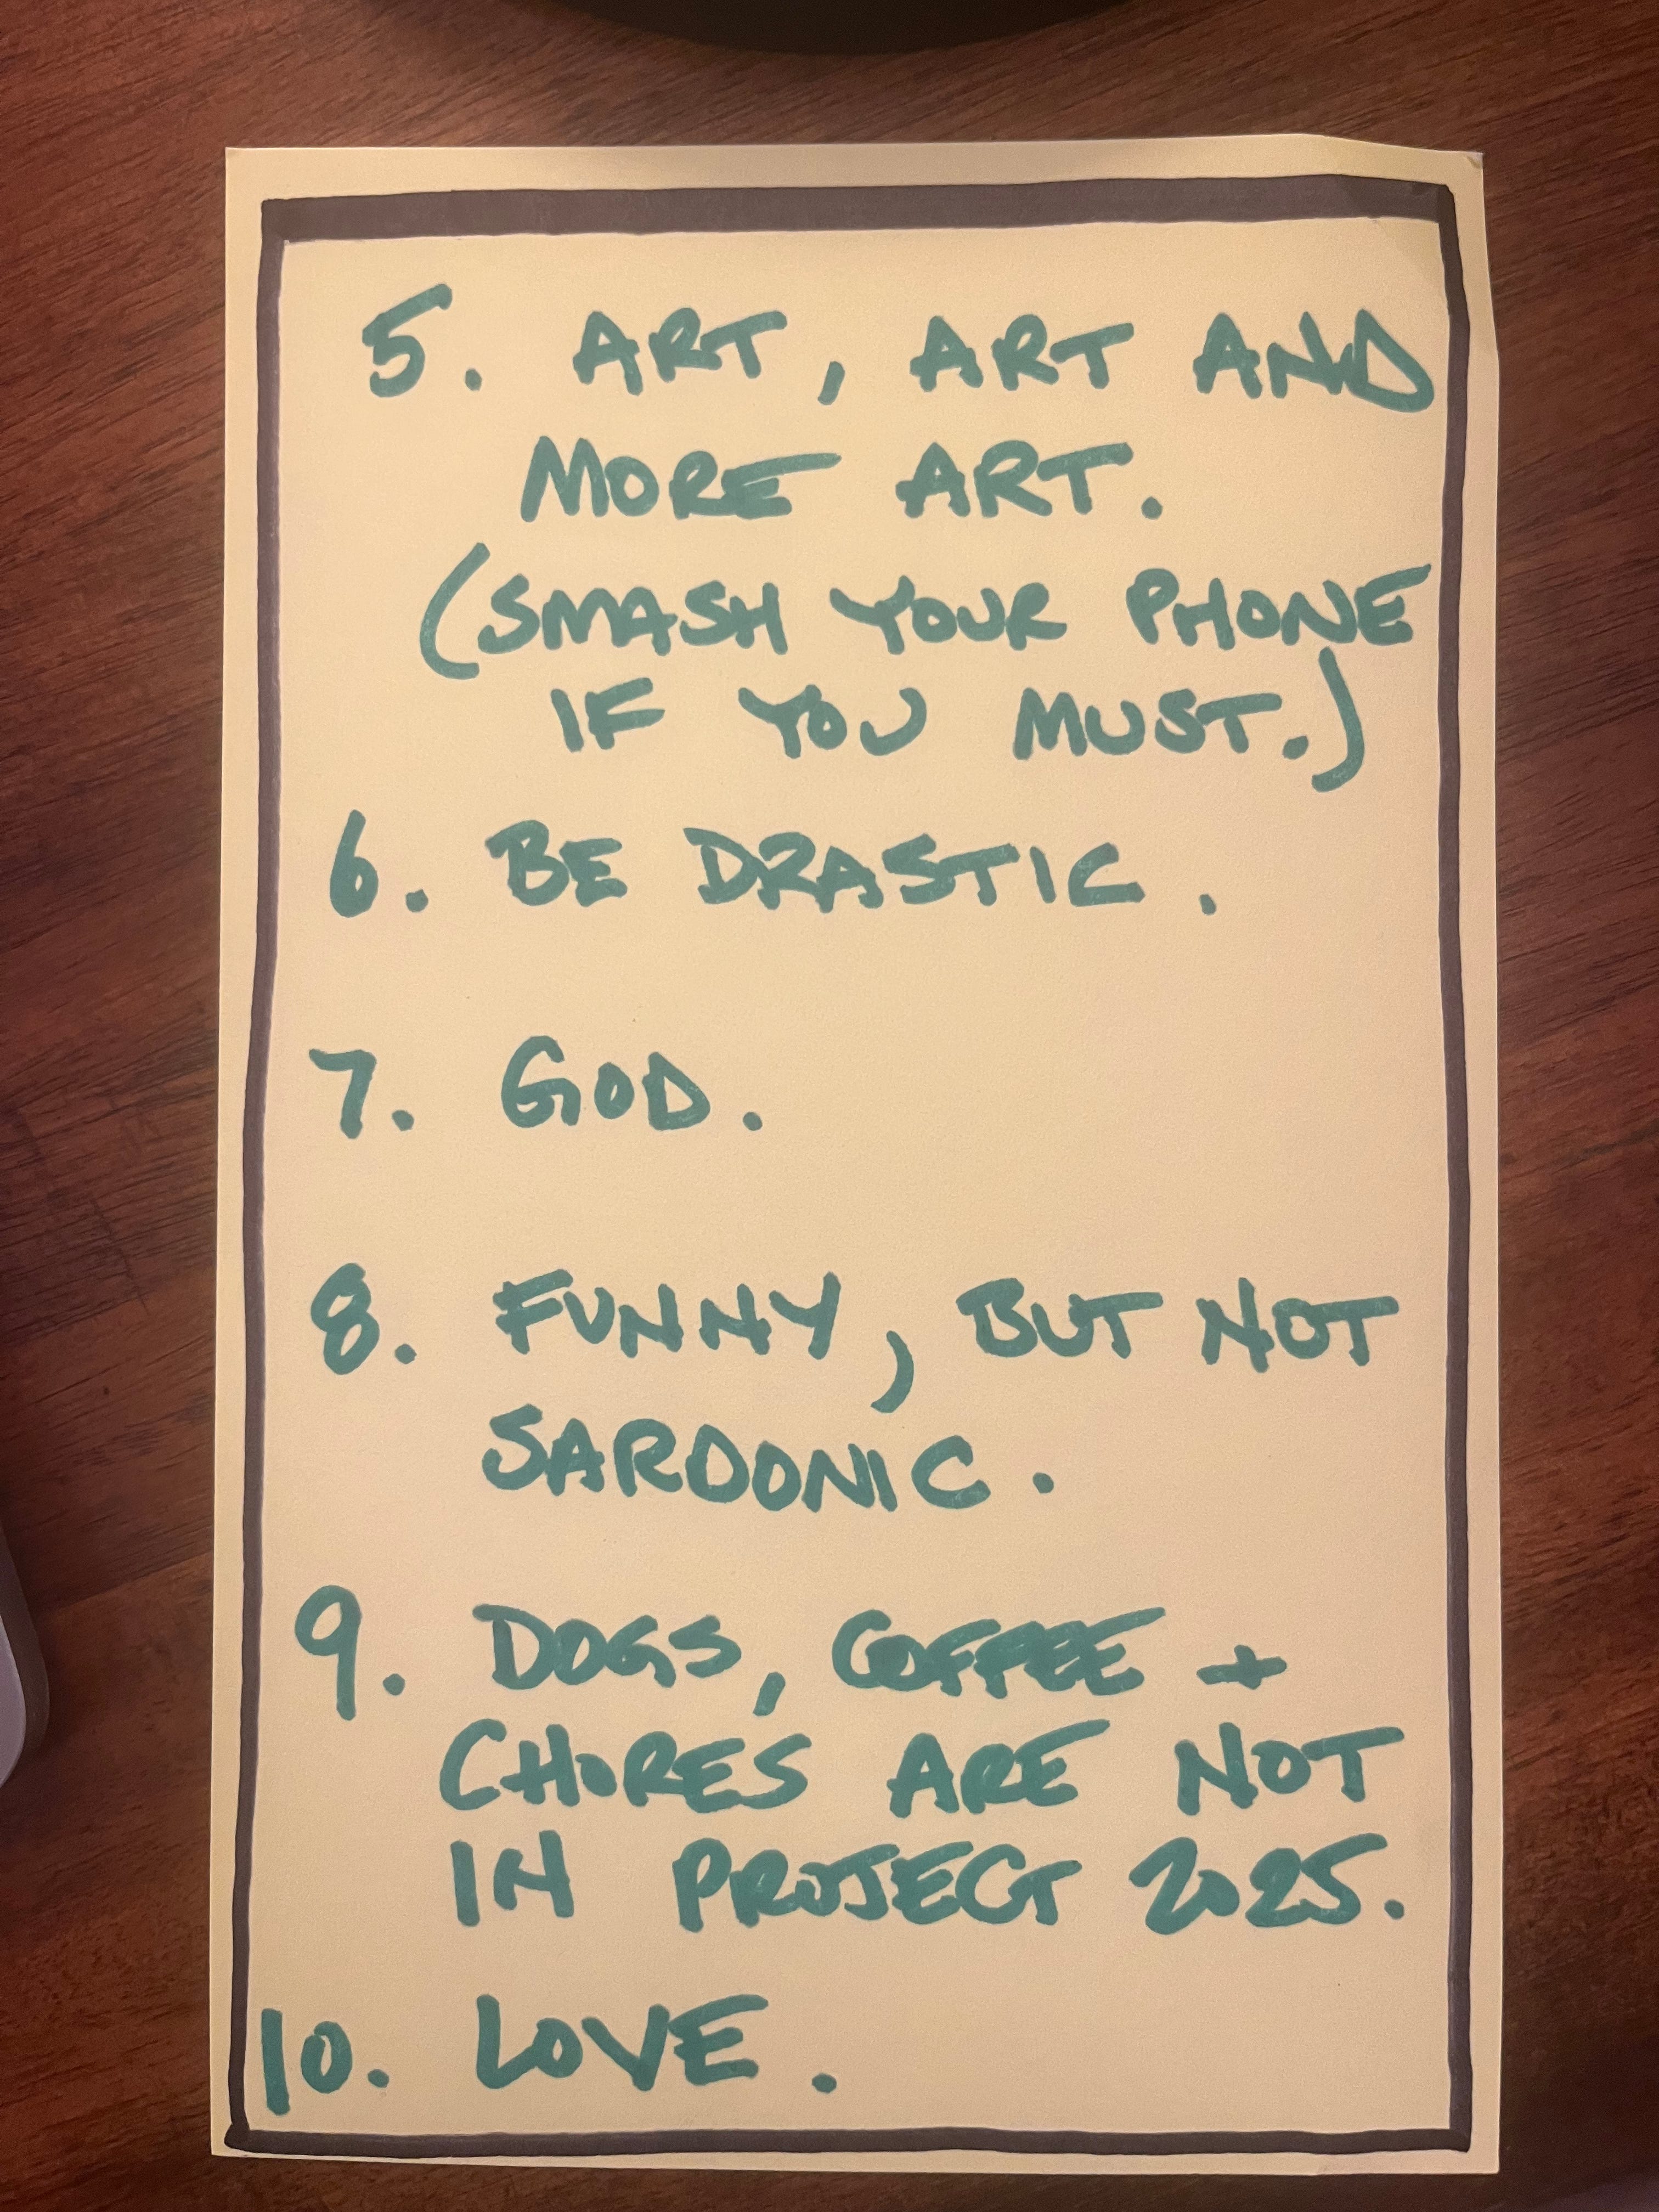 5. ART, ART AND
MORE ART.
(SMASH YOUR PHONE
IF YOU MUST.)
6. BE DRASTIC.
7. GOD.
8. FUNNY, BUT NOT
SARDONIC.
9. DOGS, COFFEE +
CHORES ARE NOT
IN PROJECT 2025.
10. LOVE.